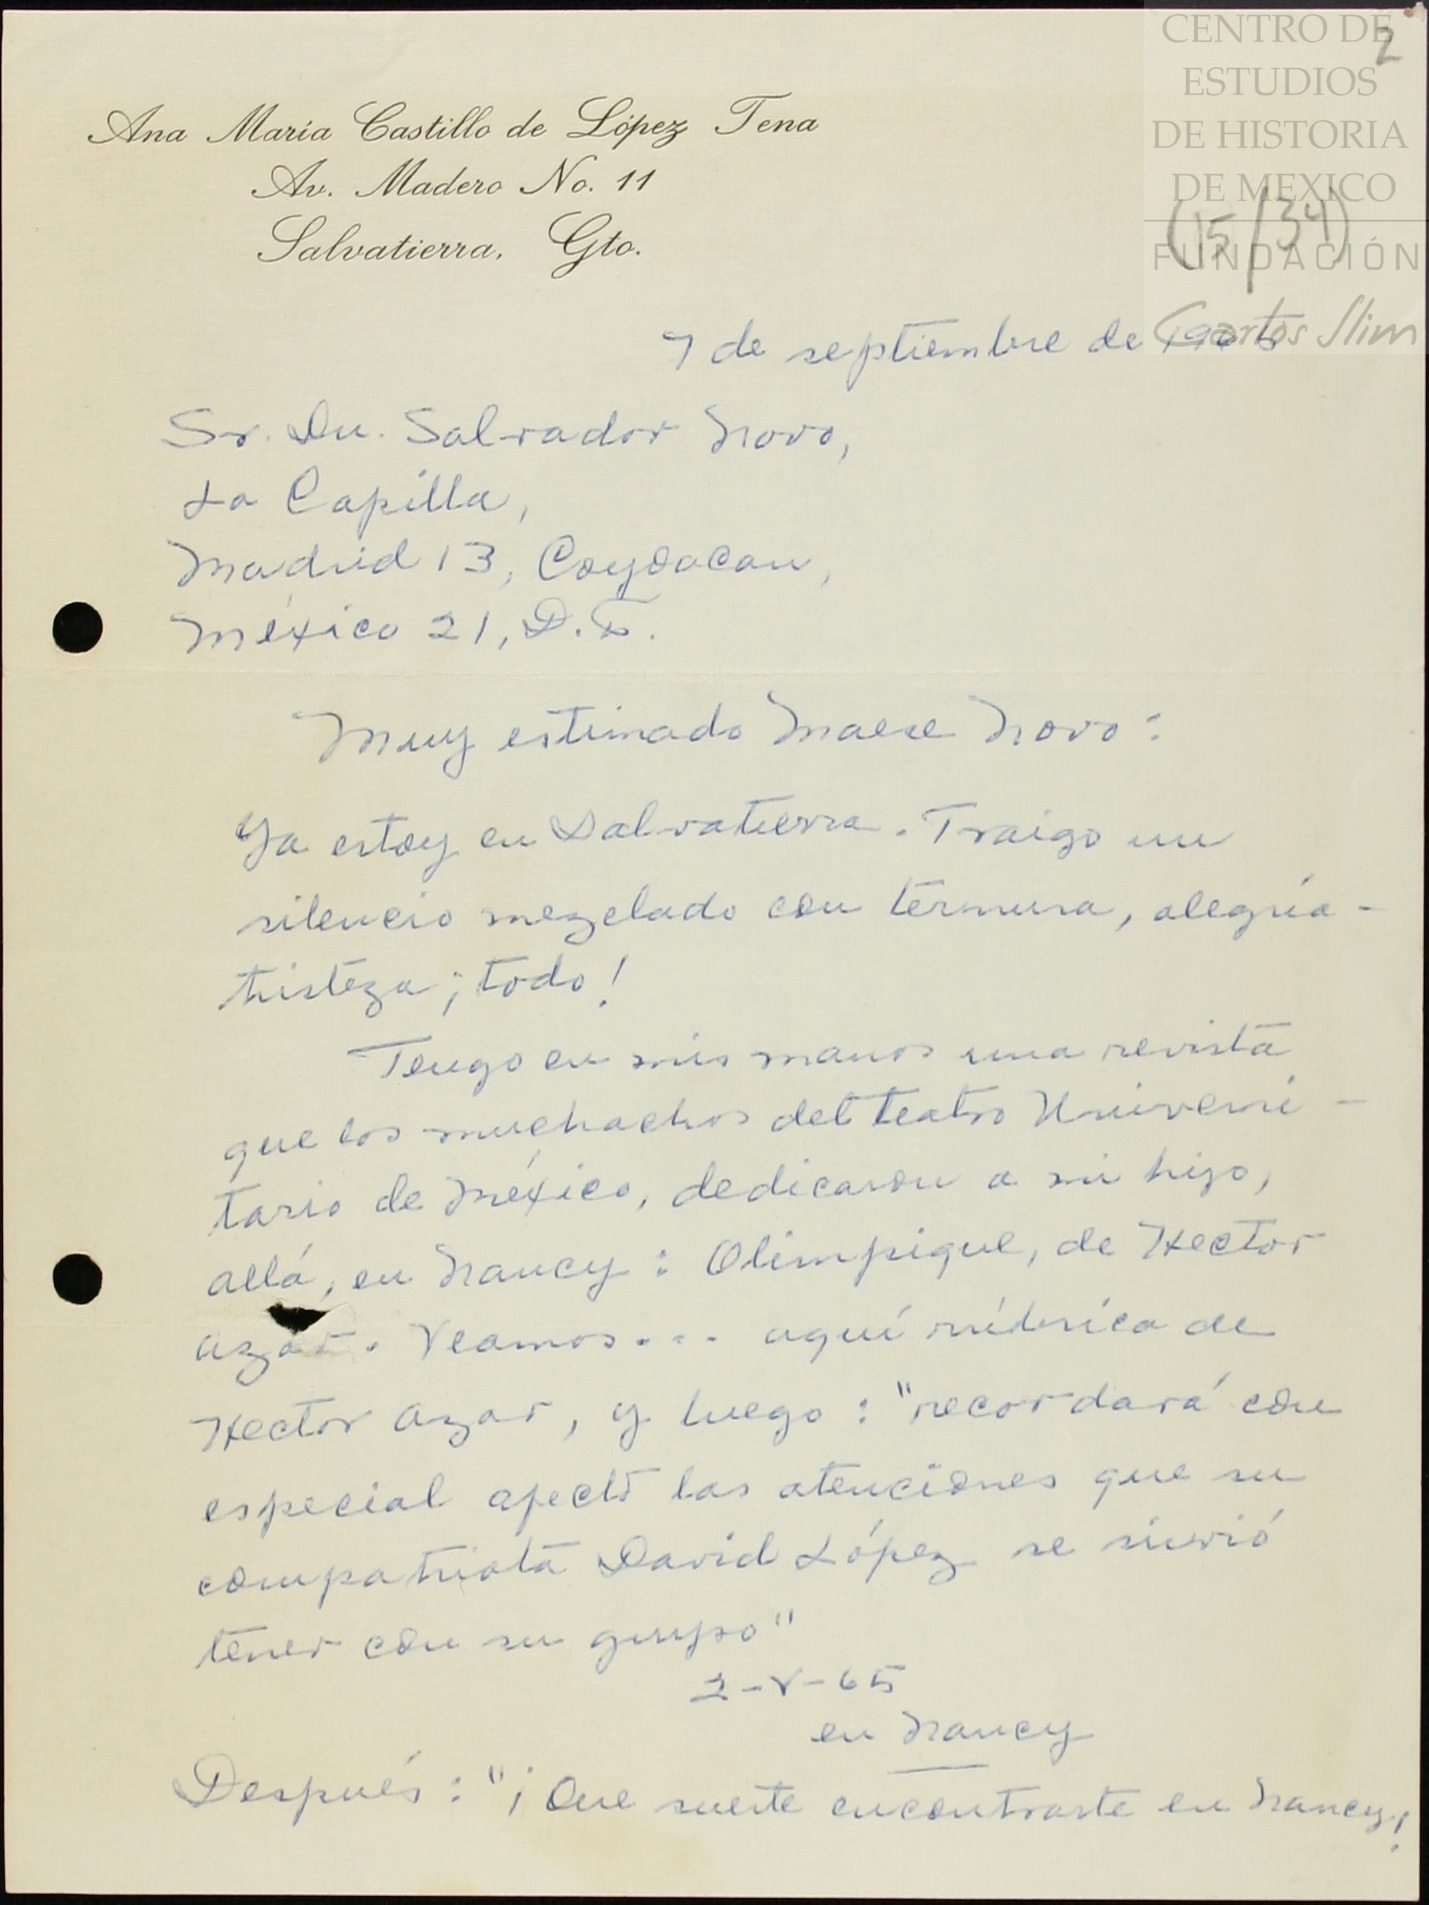 CENTRO DE
ESTUDIOS
DE HISTORIA
DE MEXICO
FUNDACIÓN
Carlos Slim
2
(15/34)
Ana María Castillo de López Tena
Av. Madero No. 11
Salvatierra, Gto.
7 de septiembre de 1965
Sr. Dn. Salvador Novo,
La Capilla,
Madrid 13, Coyoacan,
México 21, D.F.
Muy estimado Maese Novo:
Ya estoy en Salvatierra. Traigo un
silencio mezclado con ternura, alegría-
tristeza ¡todo!
Tengo en mis manos una revista
que los muchachos del teatro Universi-
tario de México, dedicaron a mi hijo,
allá, en Nancy: Olimpique, de Hector
Azar. Veamos... aquí rúbrica de
Hector Azar, y luego: "recordará con
especial afecto las atenciones que su
compatriota David López se sirvió
tener con su grupo"
2-V-65
en Nancy
Después: "¡Que suerte encontrarte en Nancy!